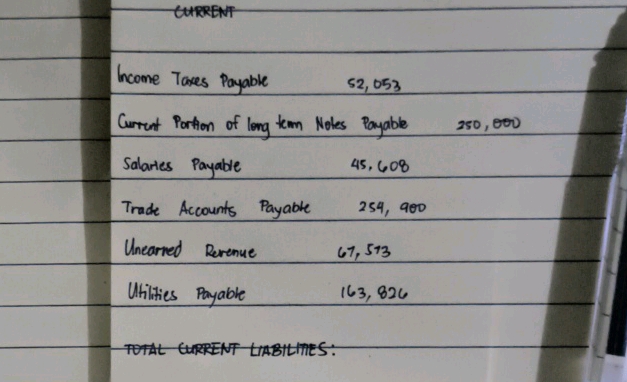 CURRENT
Income Taxes Payable 52,053
Current Portion of long term Notes Payable 250,000
Salaries Payable 45,608
Trade Accounts Payable 254,900
Unearned Revenue 67,513
Utilities Payable 163,826
TOTAL CURRENT LIABILITIES: